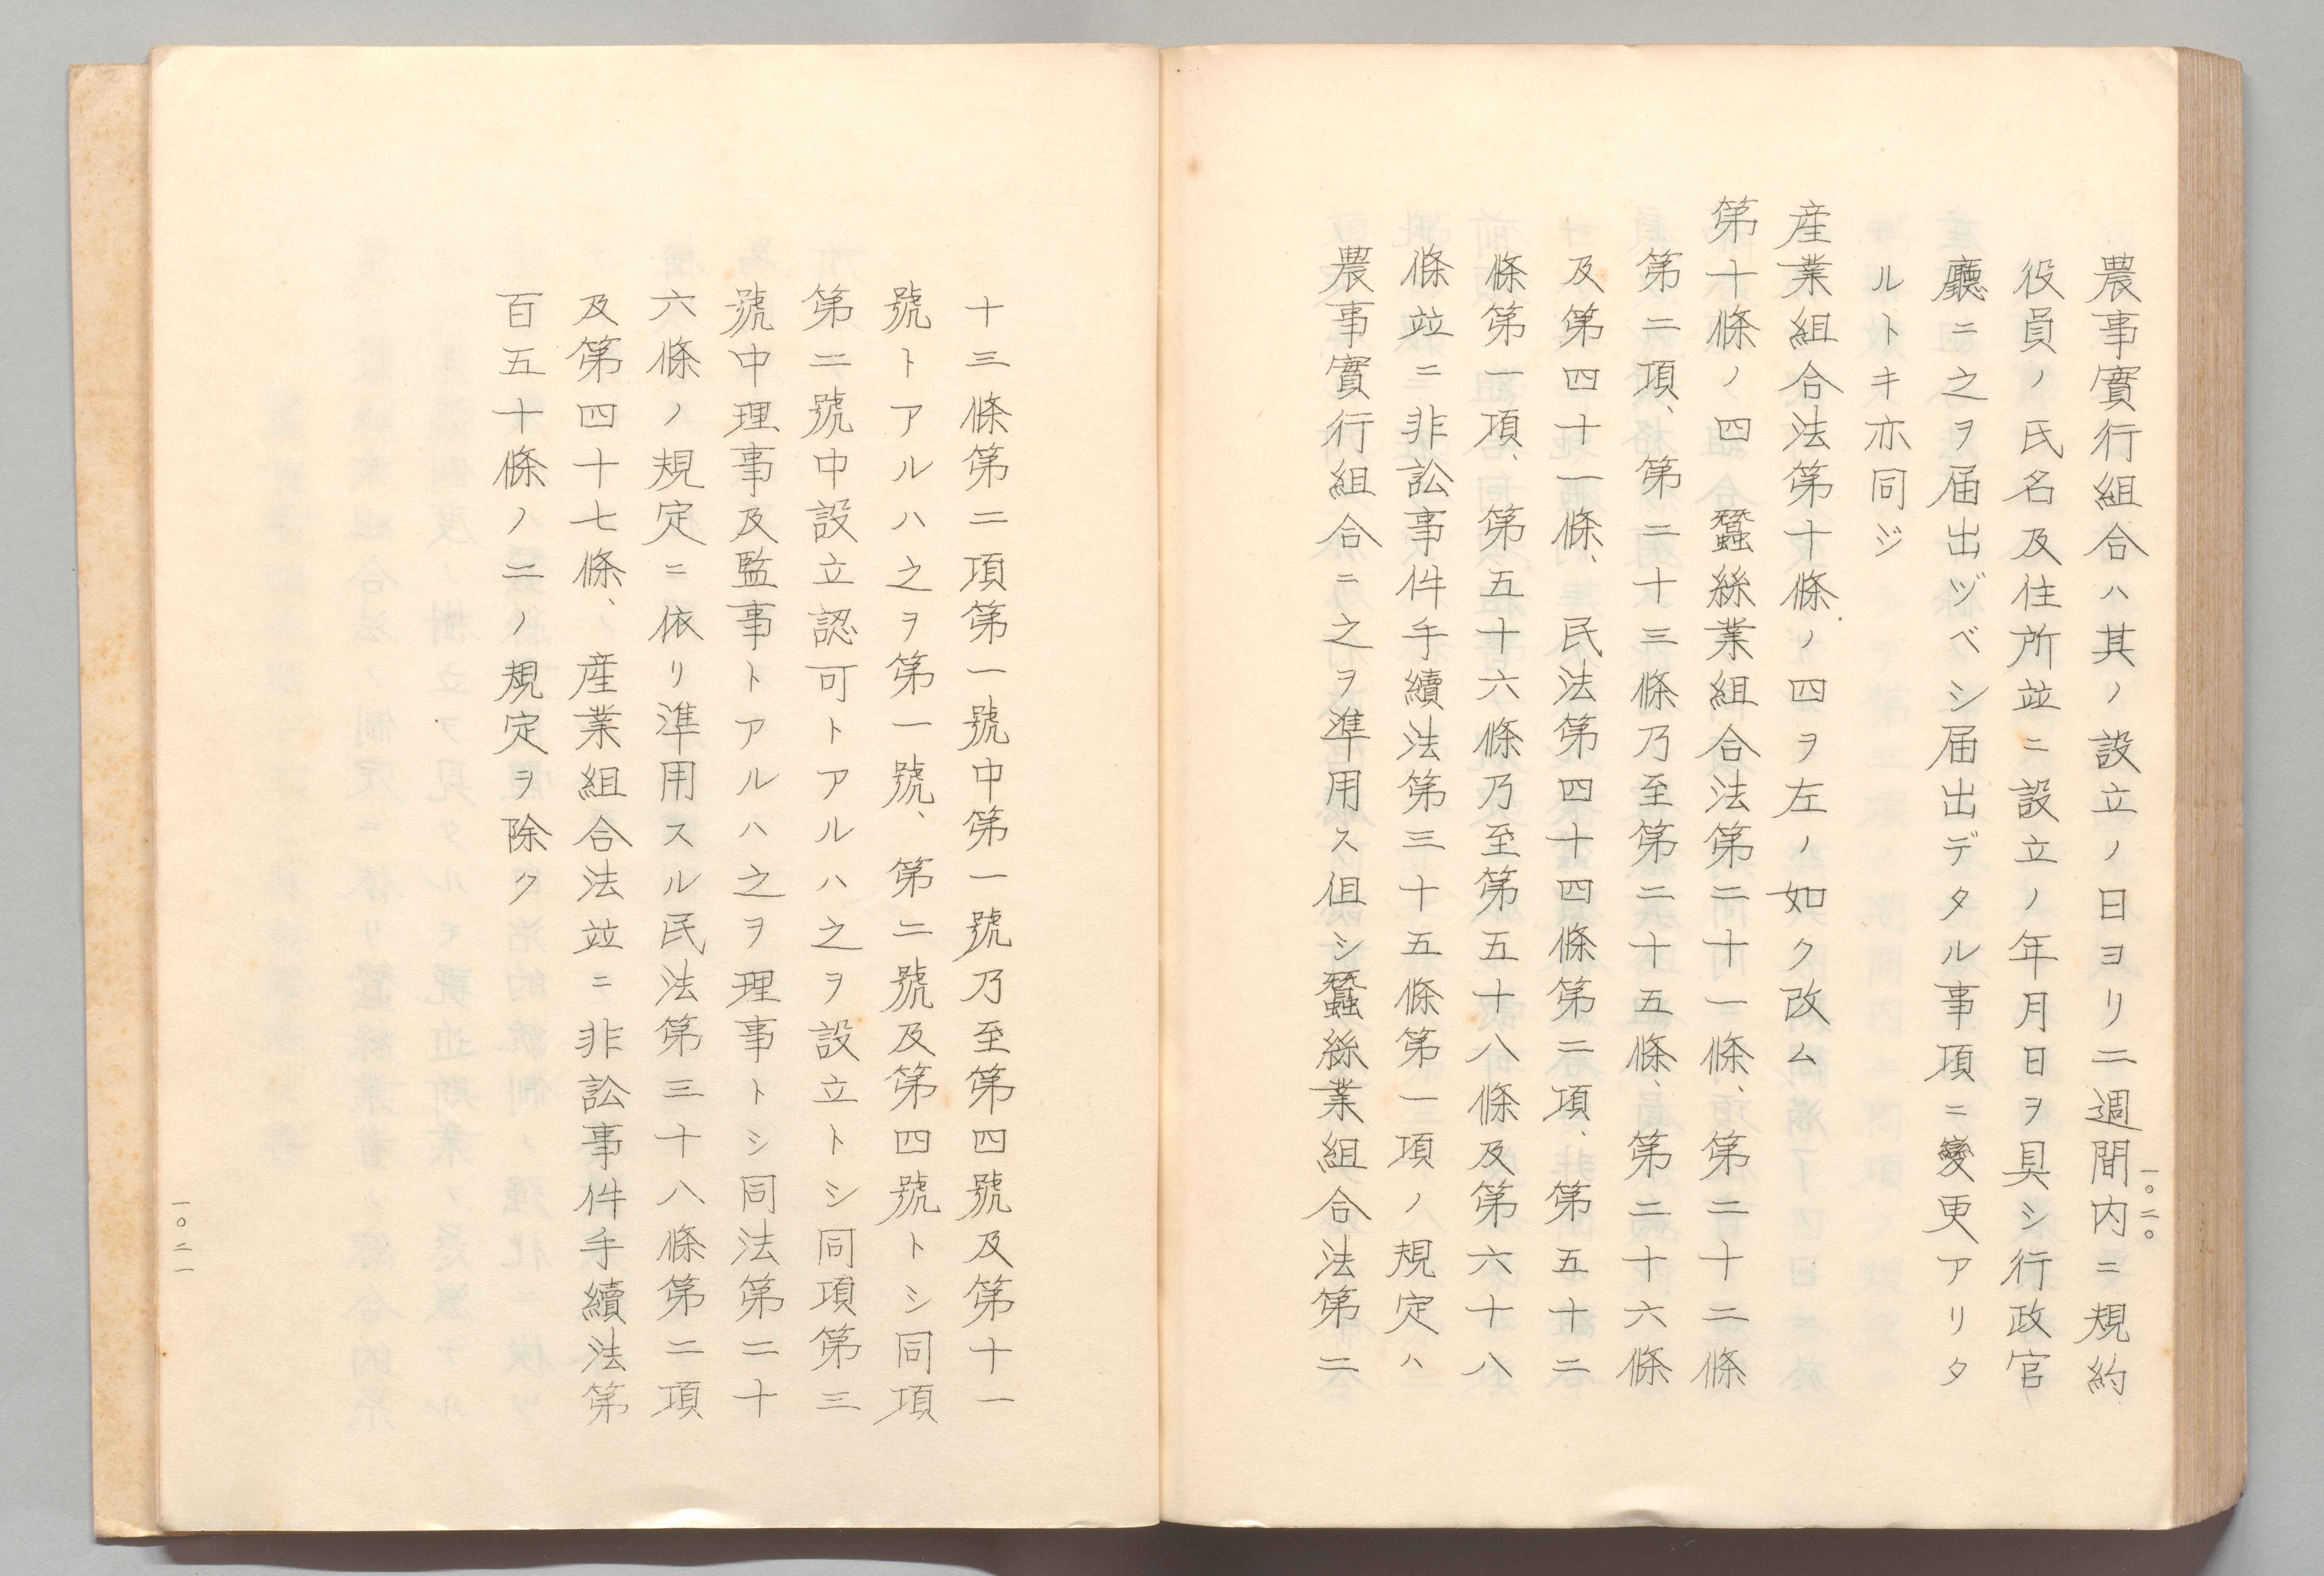 農事實行組合ハ其ノ設立ノ日ヨリ二週間内ニ規約
役員ノ氏名及住所竝ニ設立ノ年月日ヲ具シ行政官
廳ニ之ヲ届出ヅベシ届出デタル事項ニ變更アリタ
ルトキ亦同ジ
産業組合法第十條ノ四ヲ左ノ如ク改ム
第十條ノ四 蠶絲業組合法第二十一條、第二十二條
第二項、第二十三條乃至第二十五條、第二十六條
及第四十一條、民法第四十四條第二項、第五十二
條第一項、第五十六條乃至第五十八條及第六十八
條竝ニ非訟事件手續法第三十五條第一項ノ規定ハ
農事實行組合ニ之ヲ準用ス但シ蠶絲業組合法第二
一〇二〇
十三條第二項第一號中第一號乃至第四號及第十一
號トアルハ之ヲ第一號、第二號及第四號トシ同項
第二號中設立認可トアルハ之ヲ設立トシ同項第三
號中理事及監事トアルハ之ヲ理事トシ同法第二十
六條ノ規定ニ依リ準用スル民法第三十八條第二項
及第四十七條、産業組合法竝ニ非訟事件手續法第
百五十條ノ二ノ規定ヲ除ク
一〇二一